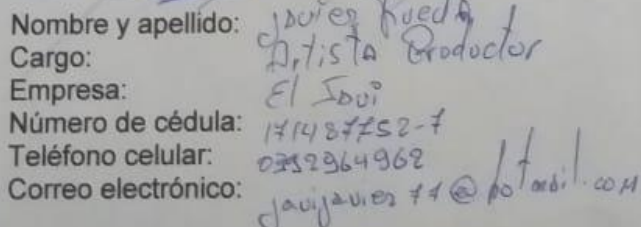 Nombre y apellido: Javier Rueda
Cargo: Artista Productor
Empresa: El Javi
Número de cédula:
Teléfono celular:
Correo electrónico: javijavier77@hotmail.com